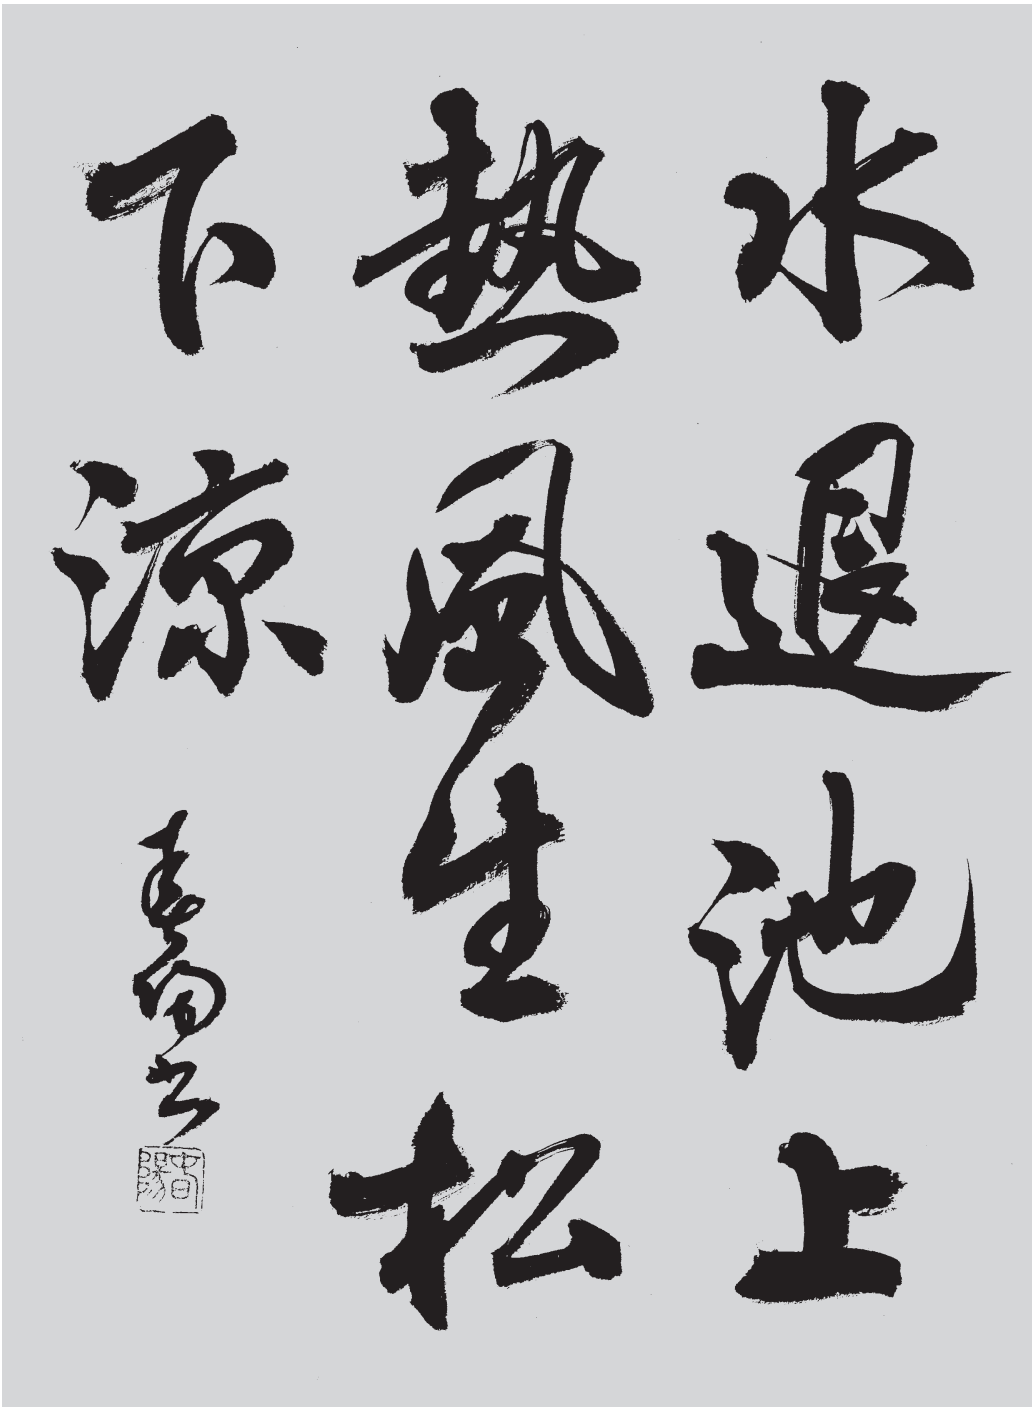 水退池上
熱風生松
下涼
春陽書
春陽